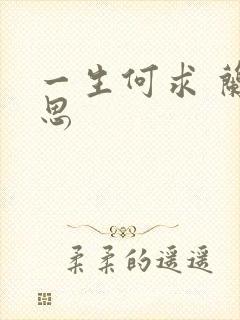 一生何求 蘭
思
柔柔的遥遥